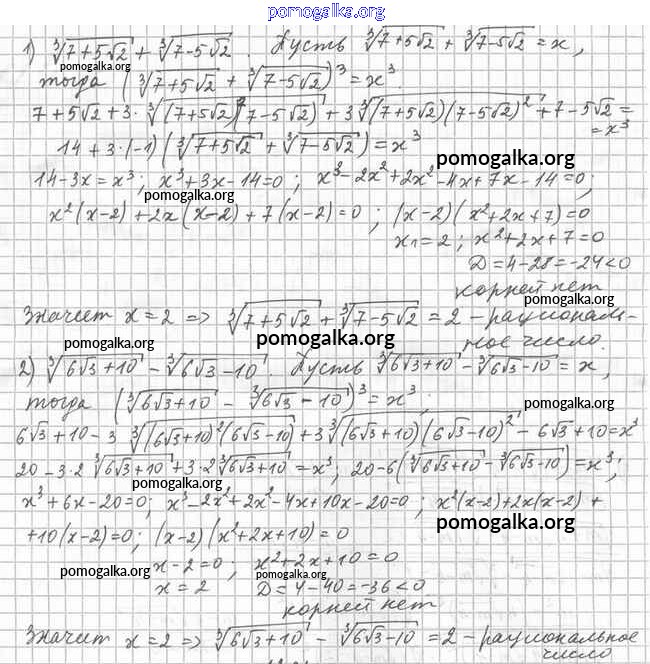 pomogalka.org
1) ∛(7+5√2) + ∛(7-5√2). Пусть ∛(7+5√2) + ∛(7-5√2) = x,
pomogalka.org
тогда (∛(7+5√2) + ∛(7-5√2))³ = x³.
7+5√2+3·∛((7+5√2)²(7-5√2)) + 3∛((7+5√2)(7-5√2)²) + 7-5√2 =
= x³
14+3·(-1)(∛(7+5√2) + ∛(7-5√2)) = x³
pomogalka.org
14-3x = x³; x³+3x-14=0; x³-2x²+2x²-4x+7x-14=0;
pomogalka.org
x²(x-2)+2x(x-2)+7(x-2)=0; (x-2)(x²+2x+7)=0
x₁=2; x²+2x+7=0
D=4-28=-24<0
корней нет
pomogalka.org
Значит x=2 => ∛(7+5√2) + ∛(7-5√2) = 2 - рациональ-
pomogalka.org
pomogalka.org
ное число.
2) ∛(6√3+10) - ∛(6√3-10). Пусть ∛(6√3+10) - ∛(6√3-10) = x,
тогда (∛(6√3+10) - ∛(6√3-10))³ = x³;
pomogalka.org
6√3+10-3∛((6√3+10)²(6√3-10)) + 3∛((6√3+10)(6√3-10)²) - 6√3+10=x³
20-3·2∛(6√3+10)+3·2∛(6√3+10)=x³; 20-6(∛(6√3+10)-∛(6√3-10))=x³;
pomogalka.org
x³+6x-20=0; x³-2x²+2x²-4x+10x-20=0; x²(x-2)+2x(x-2)+
pomogalka.org
+10(x-2)=0; (x-2)(x²+2x+10)=0
x-2=0; x²+2x+10=0
pomogalka.org
pomogalka.org
pomogalka.org
x=2 D=4-40=-36<0
корней нет
Значит x=2 => ∛(6√3+10) - ∛(6√3-10) = 2 - рациональное
число